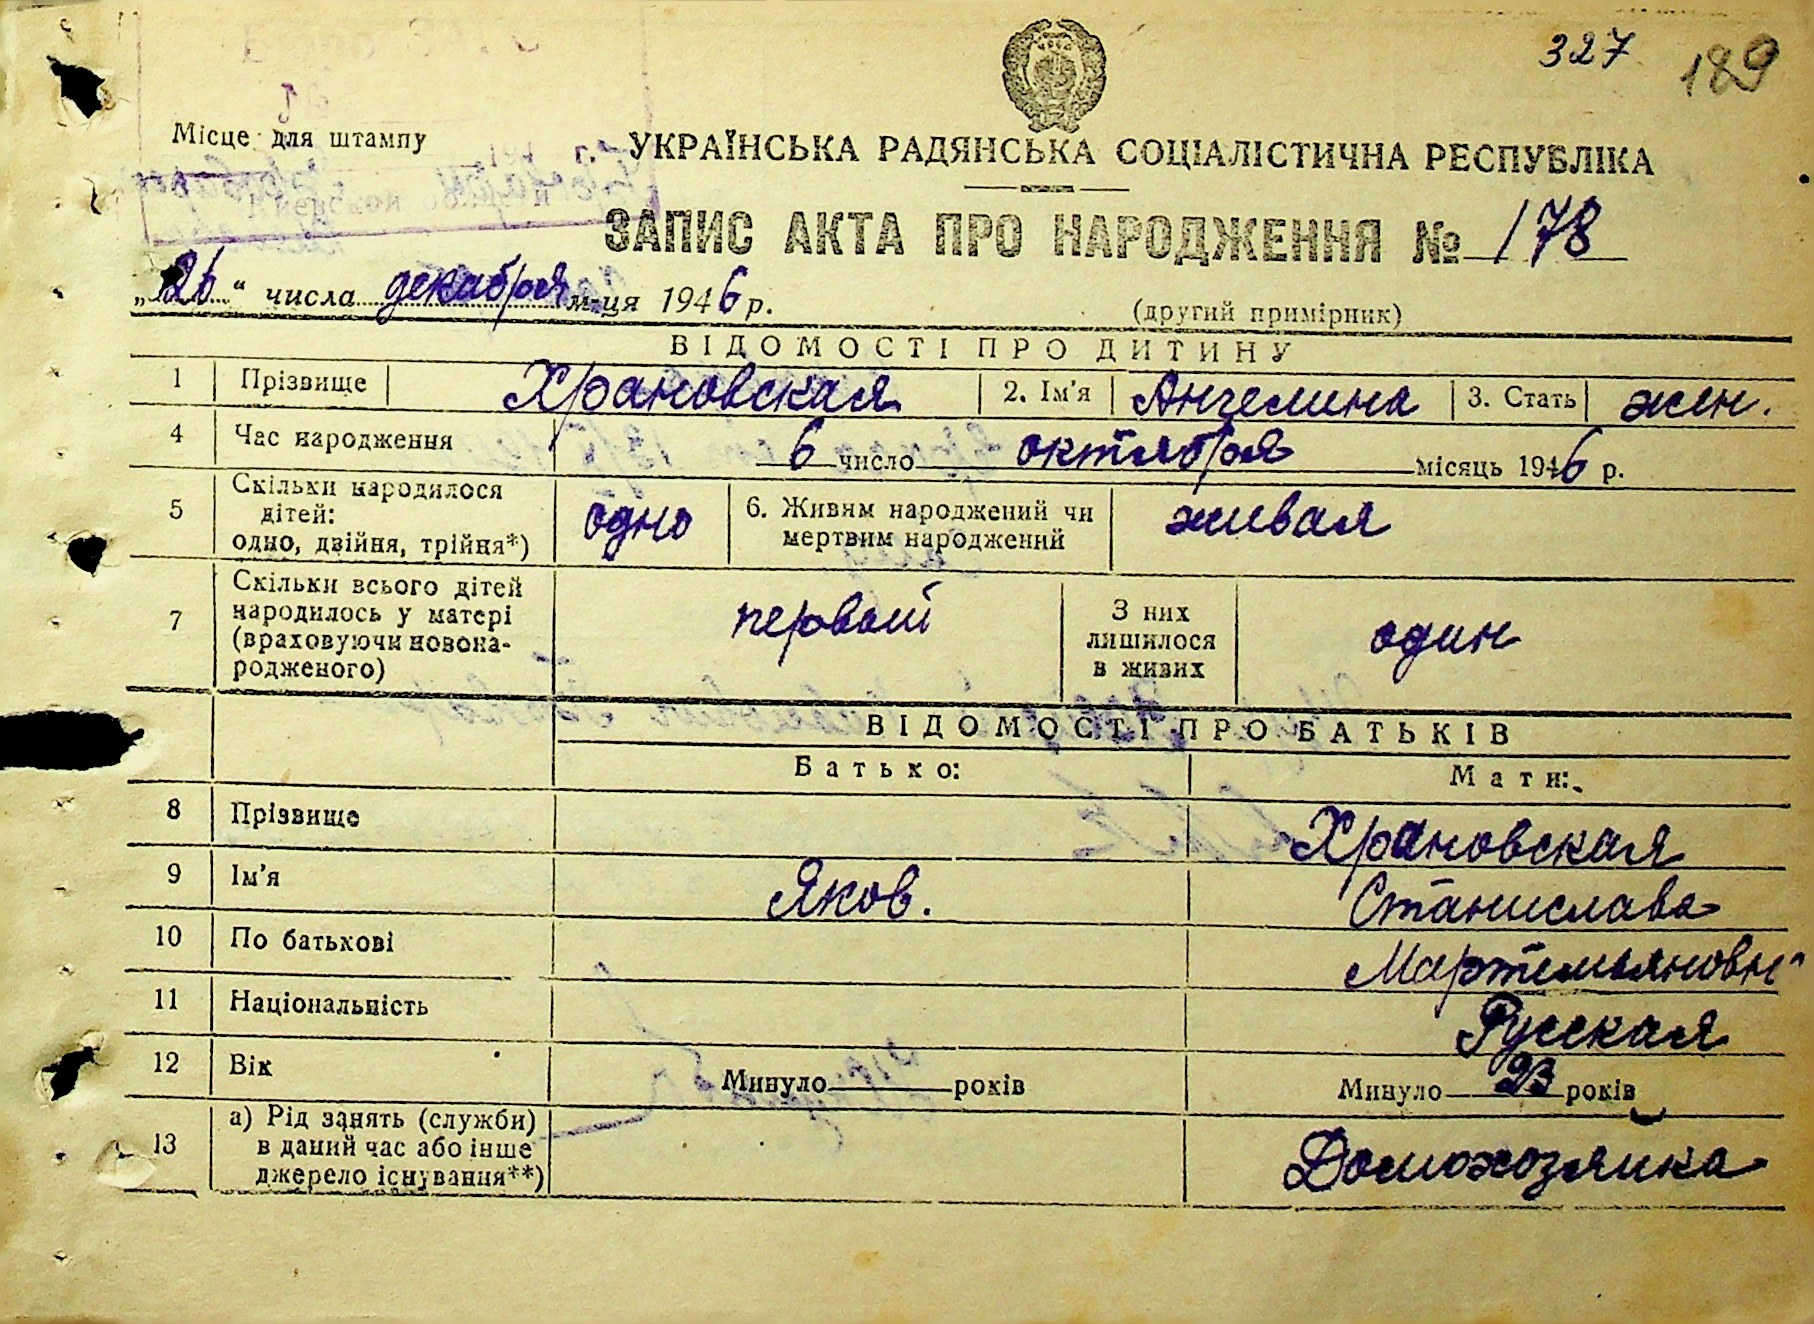 327 189
Місце для штампу
УКРАЇНСЬКА РАДЯНСЬКА СОЦІАЛІСТИЧНА РЕСПУБЛІКА
ЗАПИС АКТА ПРО НАРОДЖЕННЯ № 178
„26“ числа декабря м-ця 1946 р.
(другий примірник)
ВІДОМОСТІ ПРО ДИТИНУ
1 Прізвище Храновская 2. Ім'я Ангелина 3. Стать жен.
4 Час народження 6 число октября місяць 1946 р.
5 Скільки народилося
дітей:
одно, двійня, трійня*) одно 6. Живим народжений чи
мертвим народжений живая
7 Скільки всього дітей
народилось у матері
(враховуючи новона-
родженого) первый З них
лишилося
в живих один
ВІДОМОСТІ ПРО БАТЬКІВ
Батько: Мати:
8 Прізвище Храновская
9 Ім'я Яков. Станислава
10 По батькові Мартемьяновн
11 Національність Русская
12 Вік Минуло років Минуло 23 років
13 а) Рід занять (служби)
в даний час або інше
джерело існування**) Домохозяйка